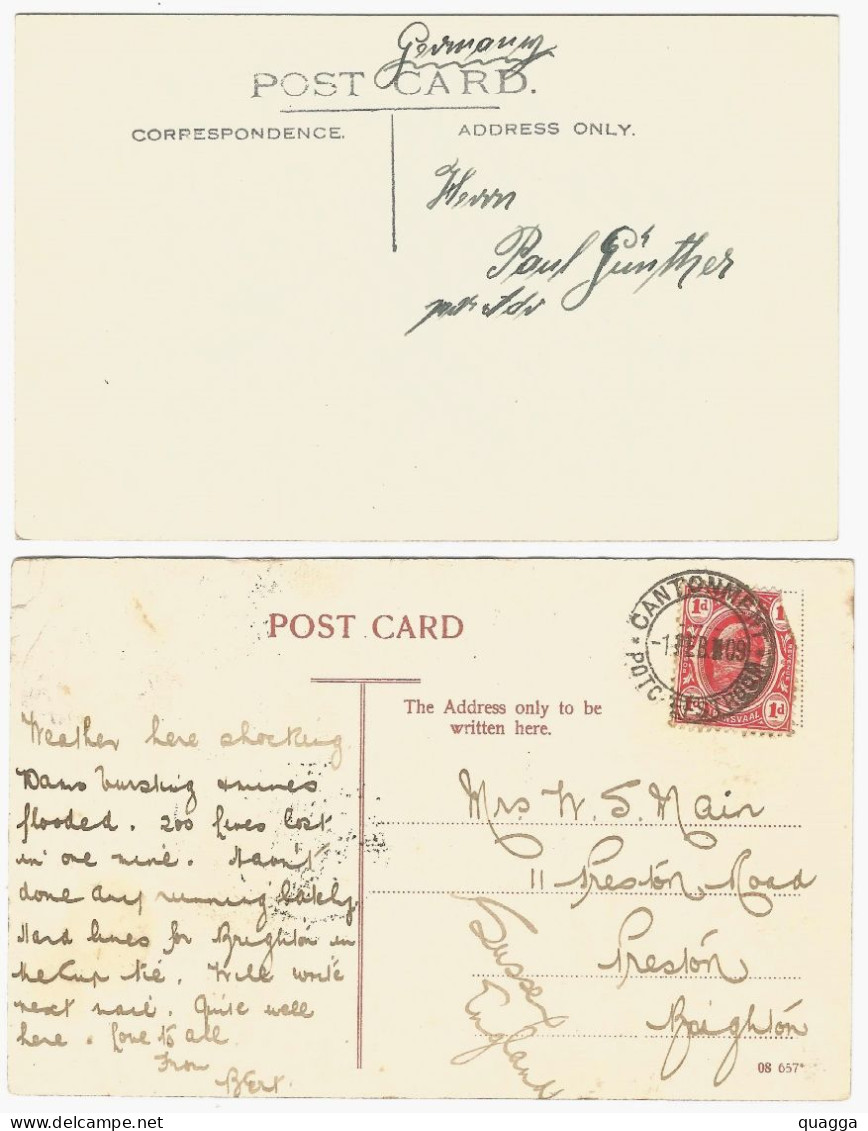 Germany
POST CARD.
CORRESPONDENCE.
ADDRESS ONLY.
Herrn
Paul Günther
POST CARD
CANTONMENT
-1 FEB 09
POTCHEFSTROOM
1d
REVENUE
TRANSVAAL
1d 1d
The Address only to be
written here.
Weather here shocking
Dams bursting & mines
flooded. 200 lives lost
in one mine. Havn't
done any running lately.
Hard lines for Brighton in
the Cup tie. Will write
next mail. Quite well
here. Love to all
From
Bert.
Mrs W. S. Main
11 Preston Road
Preston
Brighton
Sussex
England
08 657*
quagga